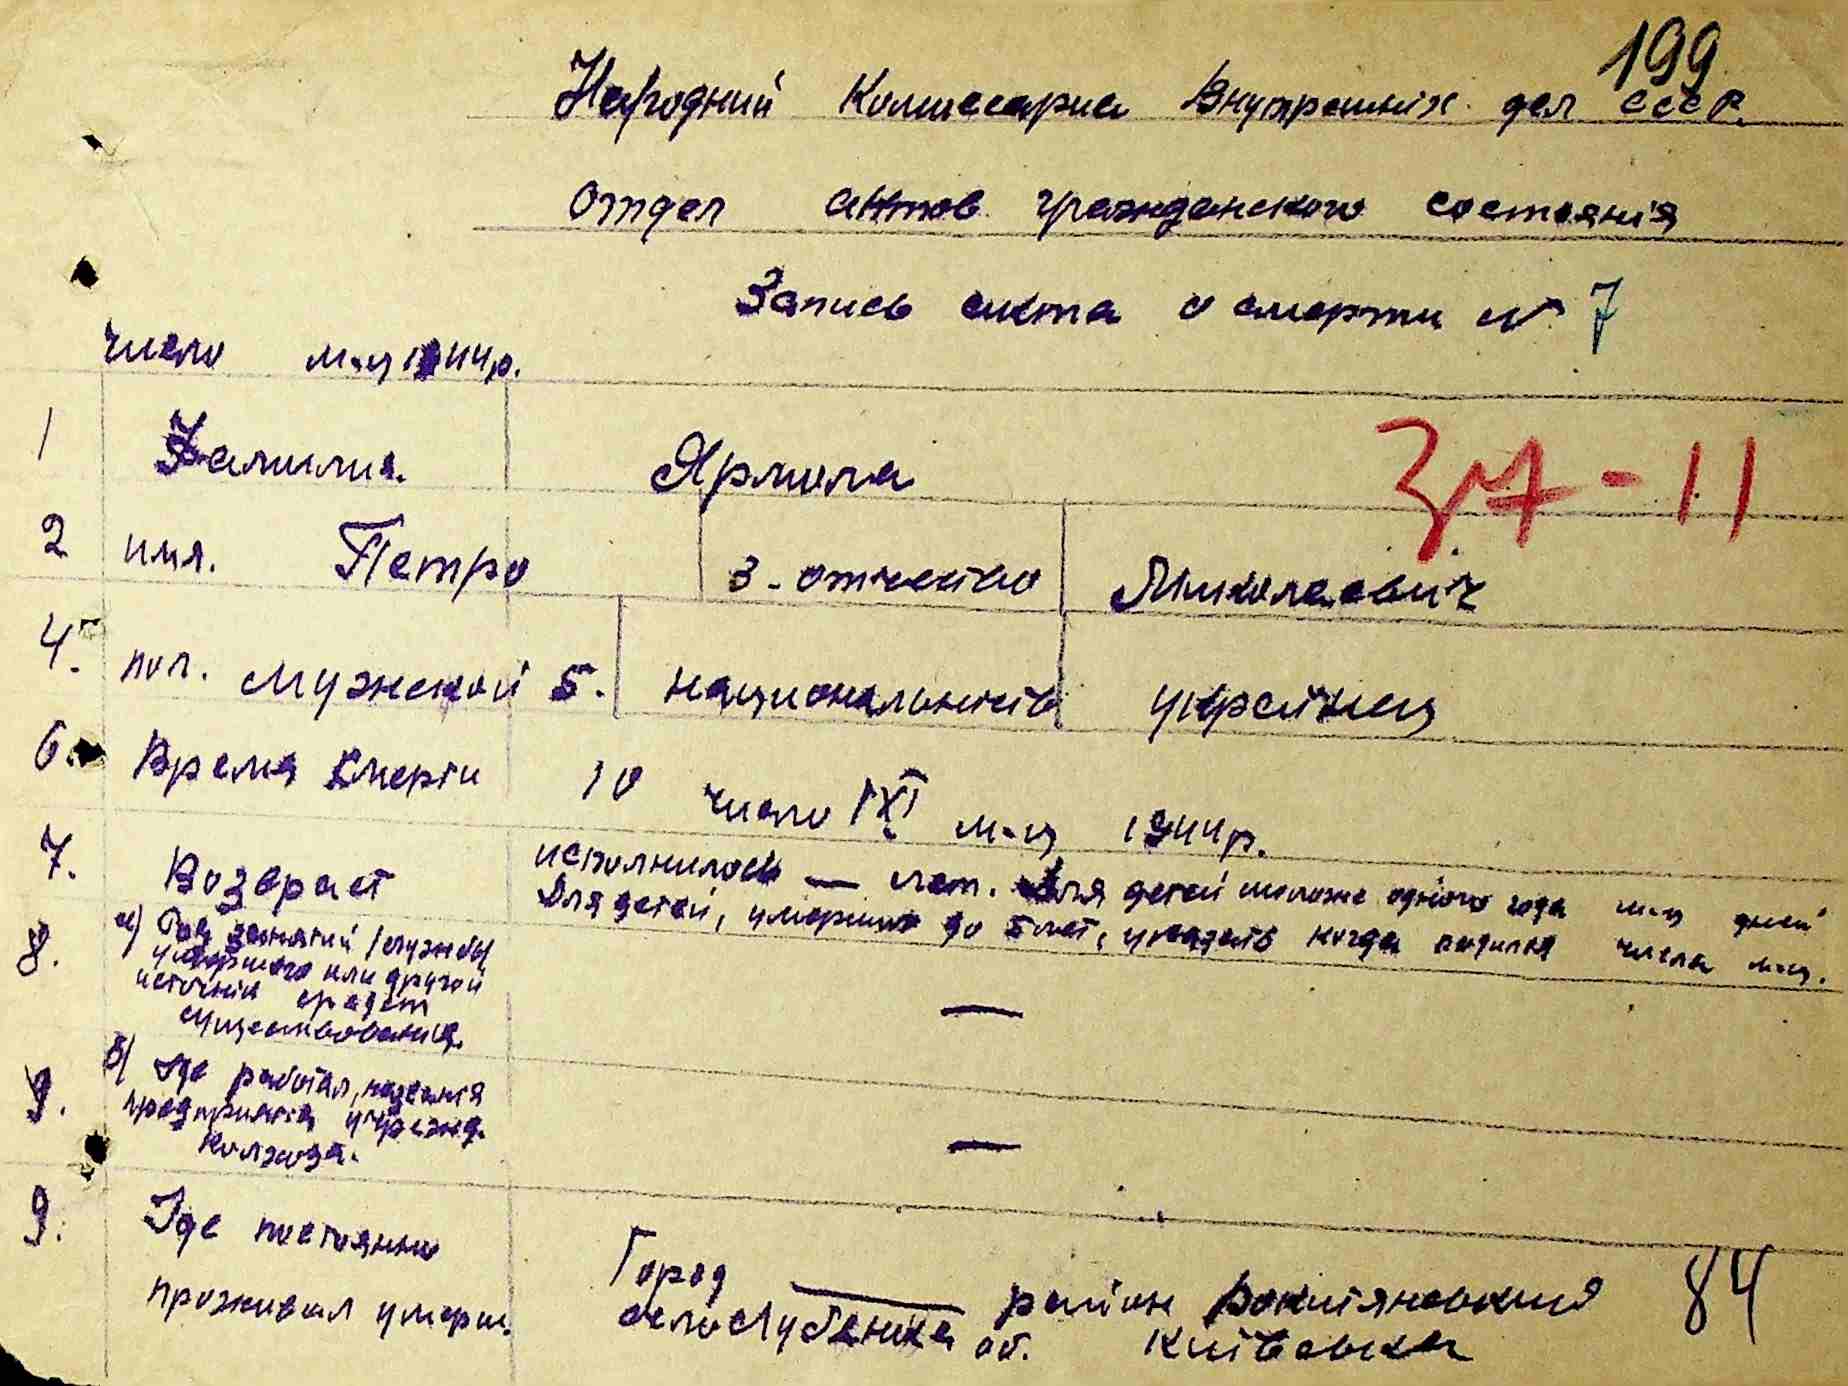 199
Народний Комиссариа Внутрешніх дел СССР.
Отдел актов гражданского состоянія
Запись акта о смерти № 7
число м-ц 1944р.
1 Фамилия. Ярмола
37-11
2 имя. Петро 3-отчество Миколаевич
4. пол. мужской 5. национальність украінец
6. Время смерти 10 число IXI м-ц 1944р.
7. Возраст исполнилось — лет. Для детей моложе одного года м-ц дней
Для детей, умерших до 5 лет, указать когда родился числа м-ц.
8. а) Род занятий /службы/
умершого или другой
источнік средст
существования. —
9. б) Где работал, названія
предприятія учрежд.
Колхоза. —
9. Где постоянно
проживал умерш.
Город — район Рокитяновский
село Лубенка об. Киівська
84